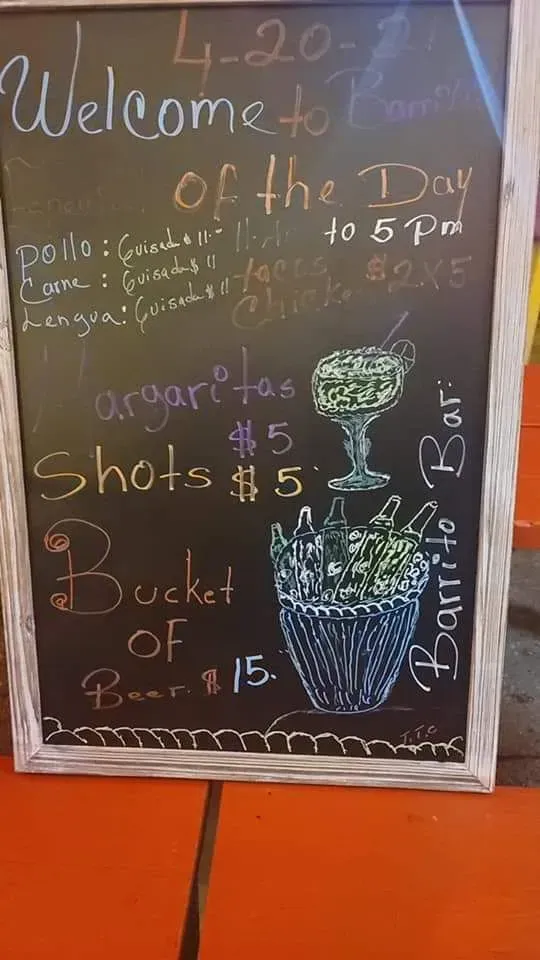 4-20-21
Welcome to Barrito
of the Day
Pollo: Guisado $11.-
to 5 Pm
Carne: Guisada $11
Tacos $2x5
Lengua: Guisada $11
Chicken
Margaritas
$5
Shots $5.
Bucket
OF
Beer. $15.
Barrito Bar:
J.T.C